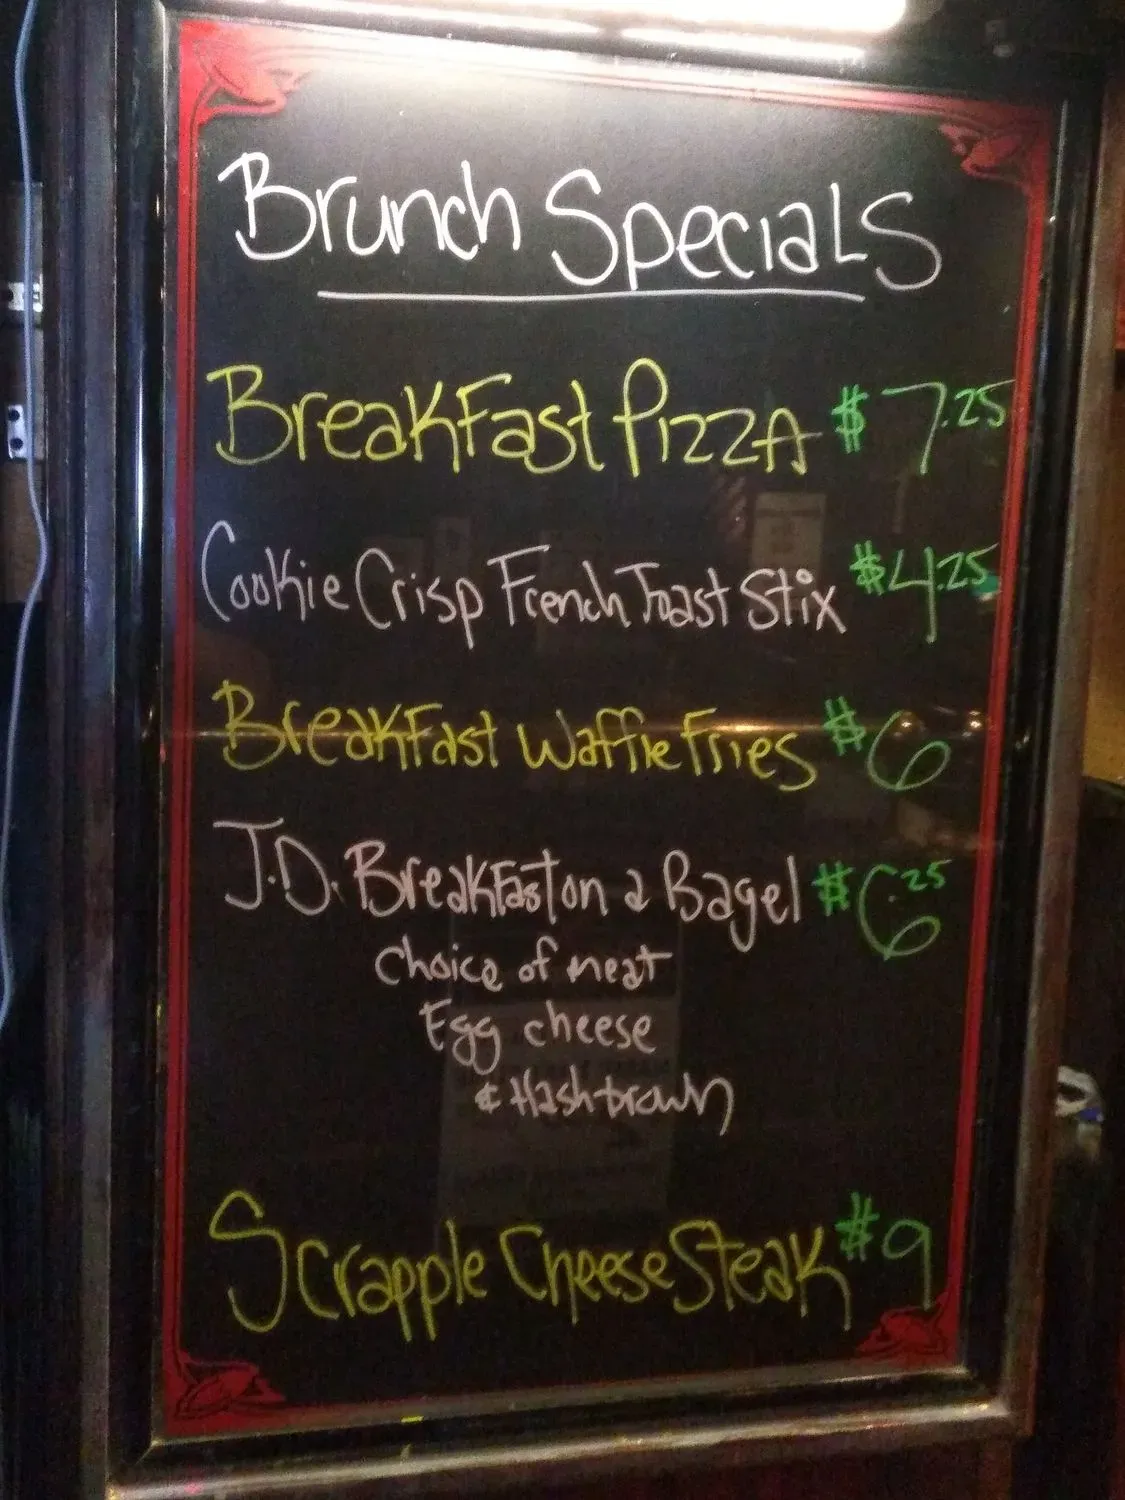 Brunch Specials
Breakfast Pizza $7.25
Cookie Crisp French Toast Stix $4.25
Breakfast Waffle Fries $6
J.D. Breakfast on a Bagel $6.25
choice of meat
Egg cheese
& Hashbrown
Scrapple CheeseSteak $9